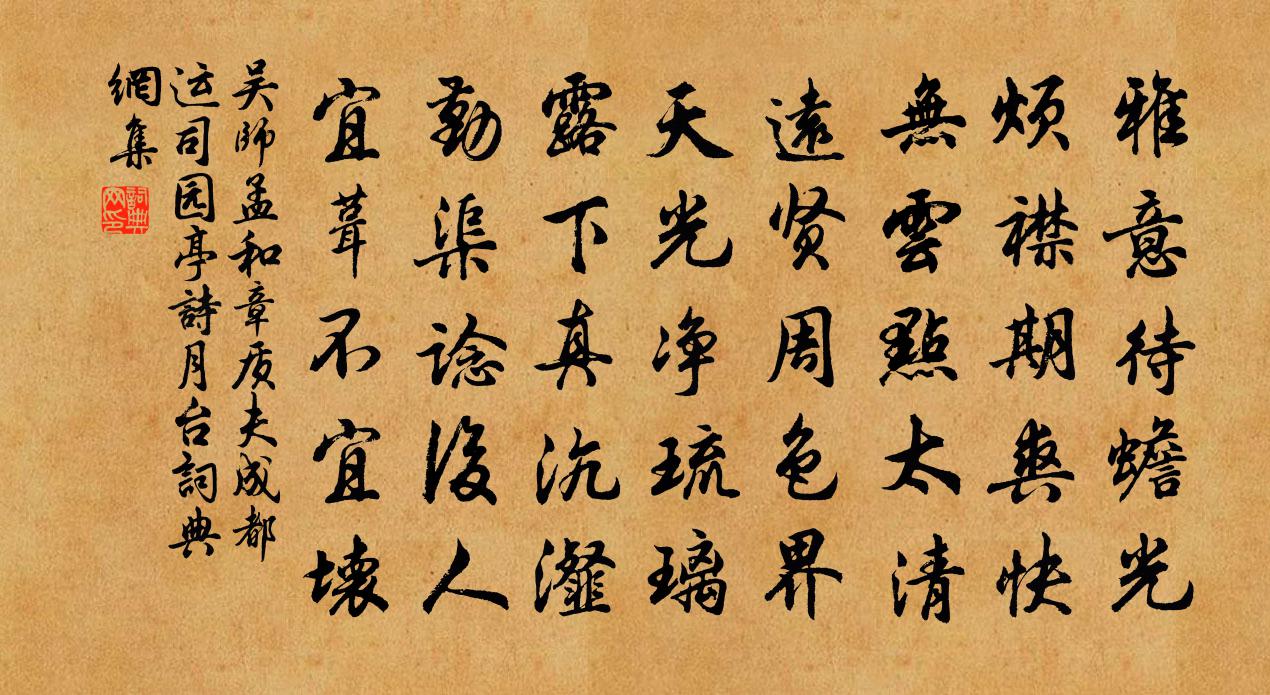 雅意待蟾光
煩襟期爽快
無雲點太清
遠贤周色界
天光净琉璃
露下真沆瀣
勤渠諗後人
宜葺不宜壞
吴師孟和章质夫成都
运司园亭詩月台詞典
網集
詞典
网印